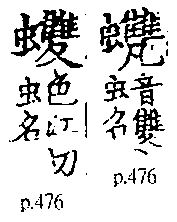 音雙
虫名
p.476
色江切
虫名
p.476